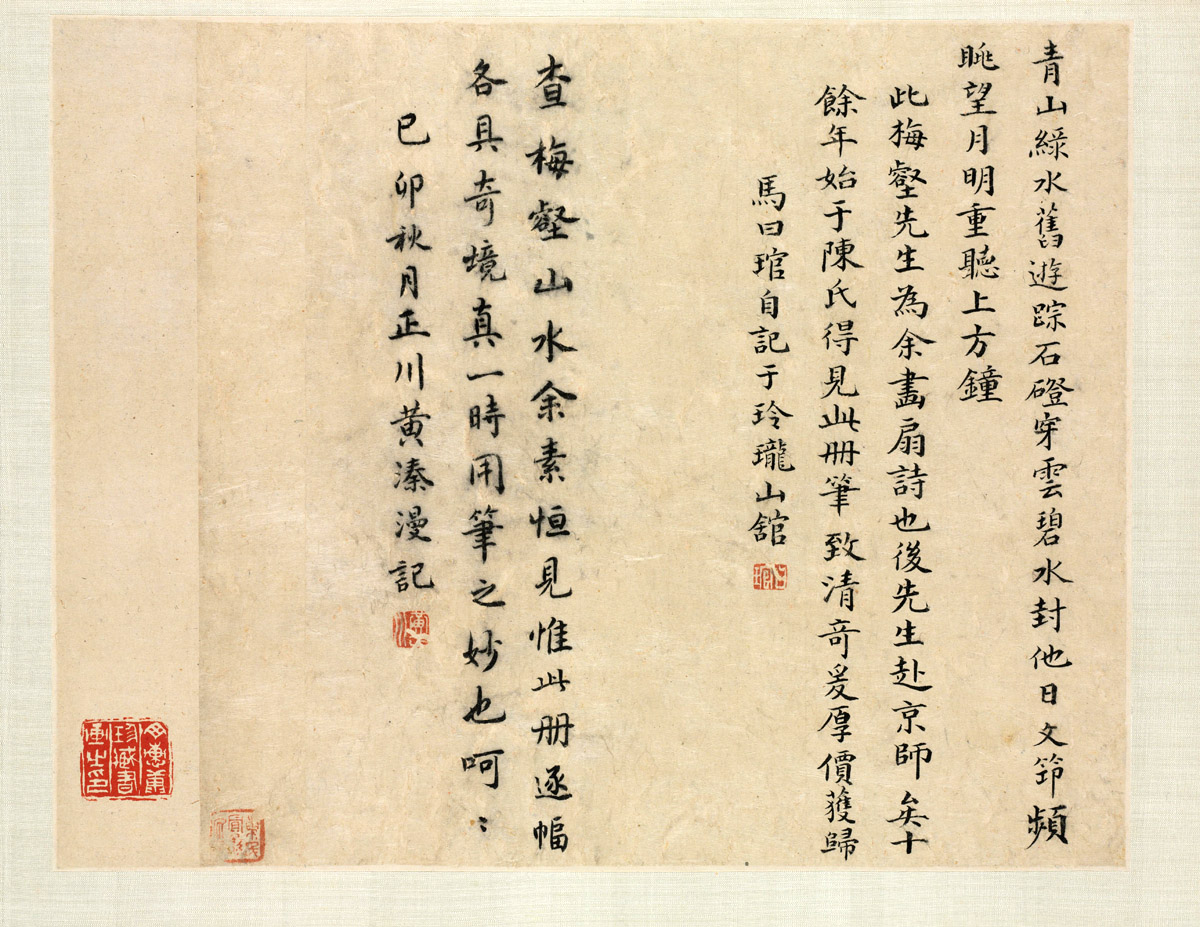 青山綠水舊遊踪石磴穿雲碧水封他日文笻頻
眺望月明重聽上方鐘
此梅壑先生為余畫扇詩也後先生赴京師矣十
餘年始于陳氏得見此冊筆致清奇爰厚價獲歸
馬曰琯自記于玲瓏山舘
查梅壑山水余素恒見惟此册逐幅
各具奇境真一時用筆之妙也呵〻
巳卯秋月正川黃溱漫記